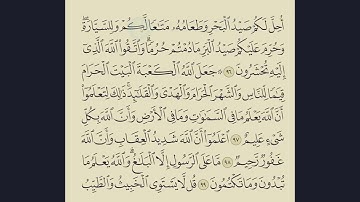 أُحِلَّ لَكُمْ صَيْدُ ٱلْبَحْرِ وَطَعَامُهُۥ مَتَٰعًا لَّكُمْ وَلِلسَّيَّارَةِۖ
وَحُرِّمَ عَلَيْكُمْ صَيْدُ ٱلْبَرِّ مَا دُمْتُمْ حُرُمًاۗ وَٱتَّقُوا۟ ٱللَّهَ ٱلَّذِىٓ
إِلَيْهِ تُحْشَرُونَ ٩٦ ۞ جَعَلَ ٱللَّهُ ٱلْكَعْبَةَ ٱلْبَيْتَ ٱلْحَرَامَ
قِيَٰمًا لِّلنَّاسِ وَٱلشَّهْرَ ٱلْحَرَامَ وَٱلْهَدْىَ وَٱلْقَلَٰٓئِدَۚ ذَٰلِكَ لِتَعْلَمُوٓا۟
أَنَّ ٱللَّهَ يَعْلَمُ مَا فِى ٱلسَّمَٰوَٰتِ وَمَا فِى ٱلْأَرْضِ وَأَنَّ ٱللَّهَ بِكُلِّ
شَىْءٍ عَلِيمٌ ٩٧ ٱعْلَمُوٓا۟ أَنَّ ٱللَّهَ شَدِيدُ ٱلْعِقَابِ وَأَنَّ ٱللَّهَ
غَفُورٌ رَّحِيمٌ ٩٨ مَّا عَلَى ٱلرَّسُولِ إِلَّا ٱلْبَلَٰغُۗ وَٱللَّهُ يَعْلَمُ مَا
تُبْدُونَ وَمَا تَكْتُمُونَ ٩٩ قُل لَّا يَسْتَوِى ٱلْخَبِيثُ وَٱلطَّيِّبُ